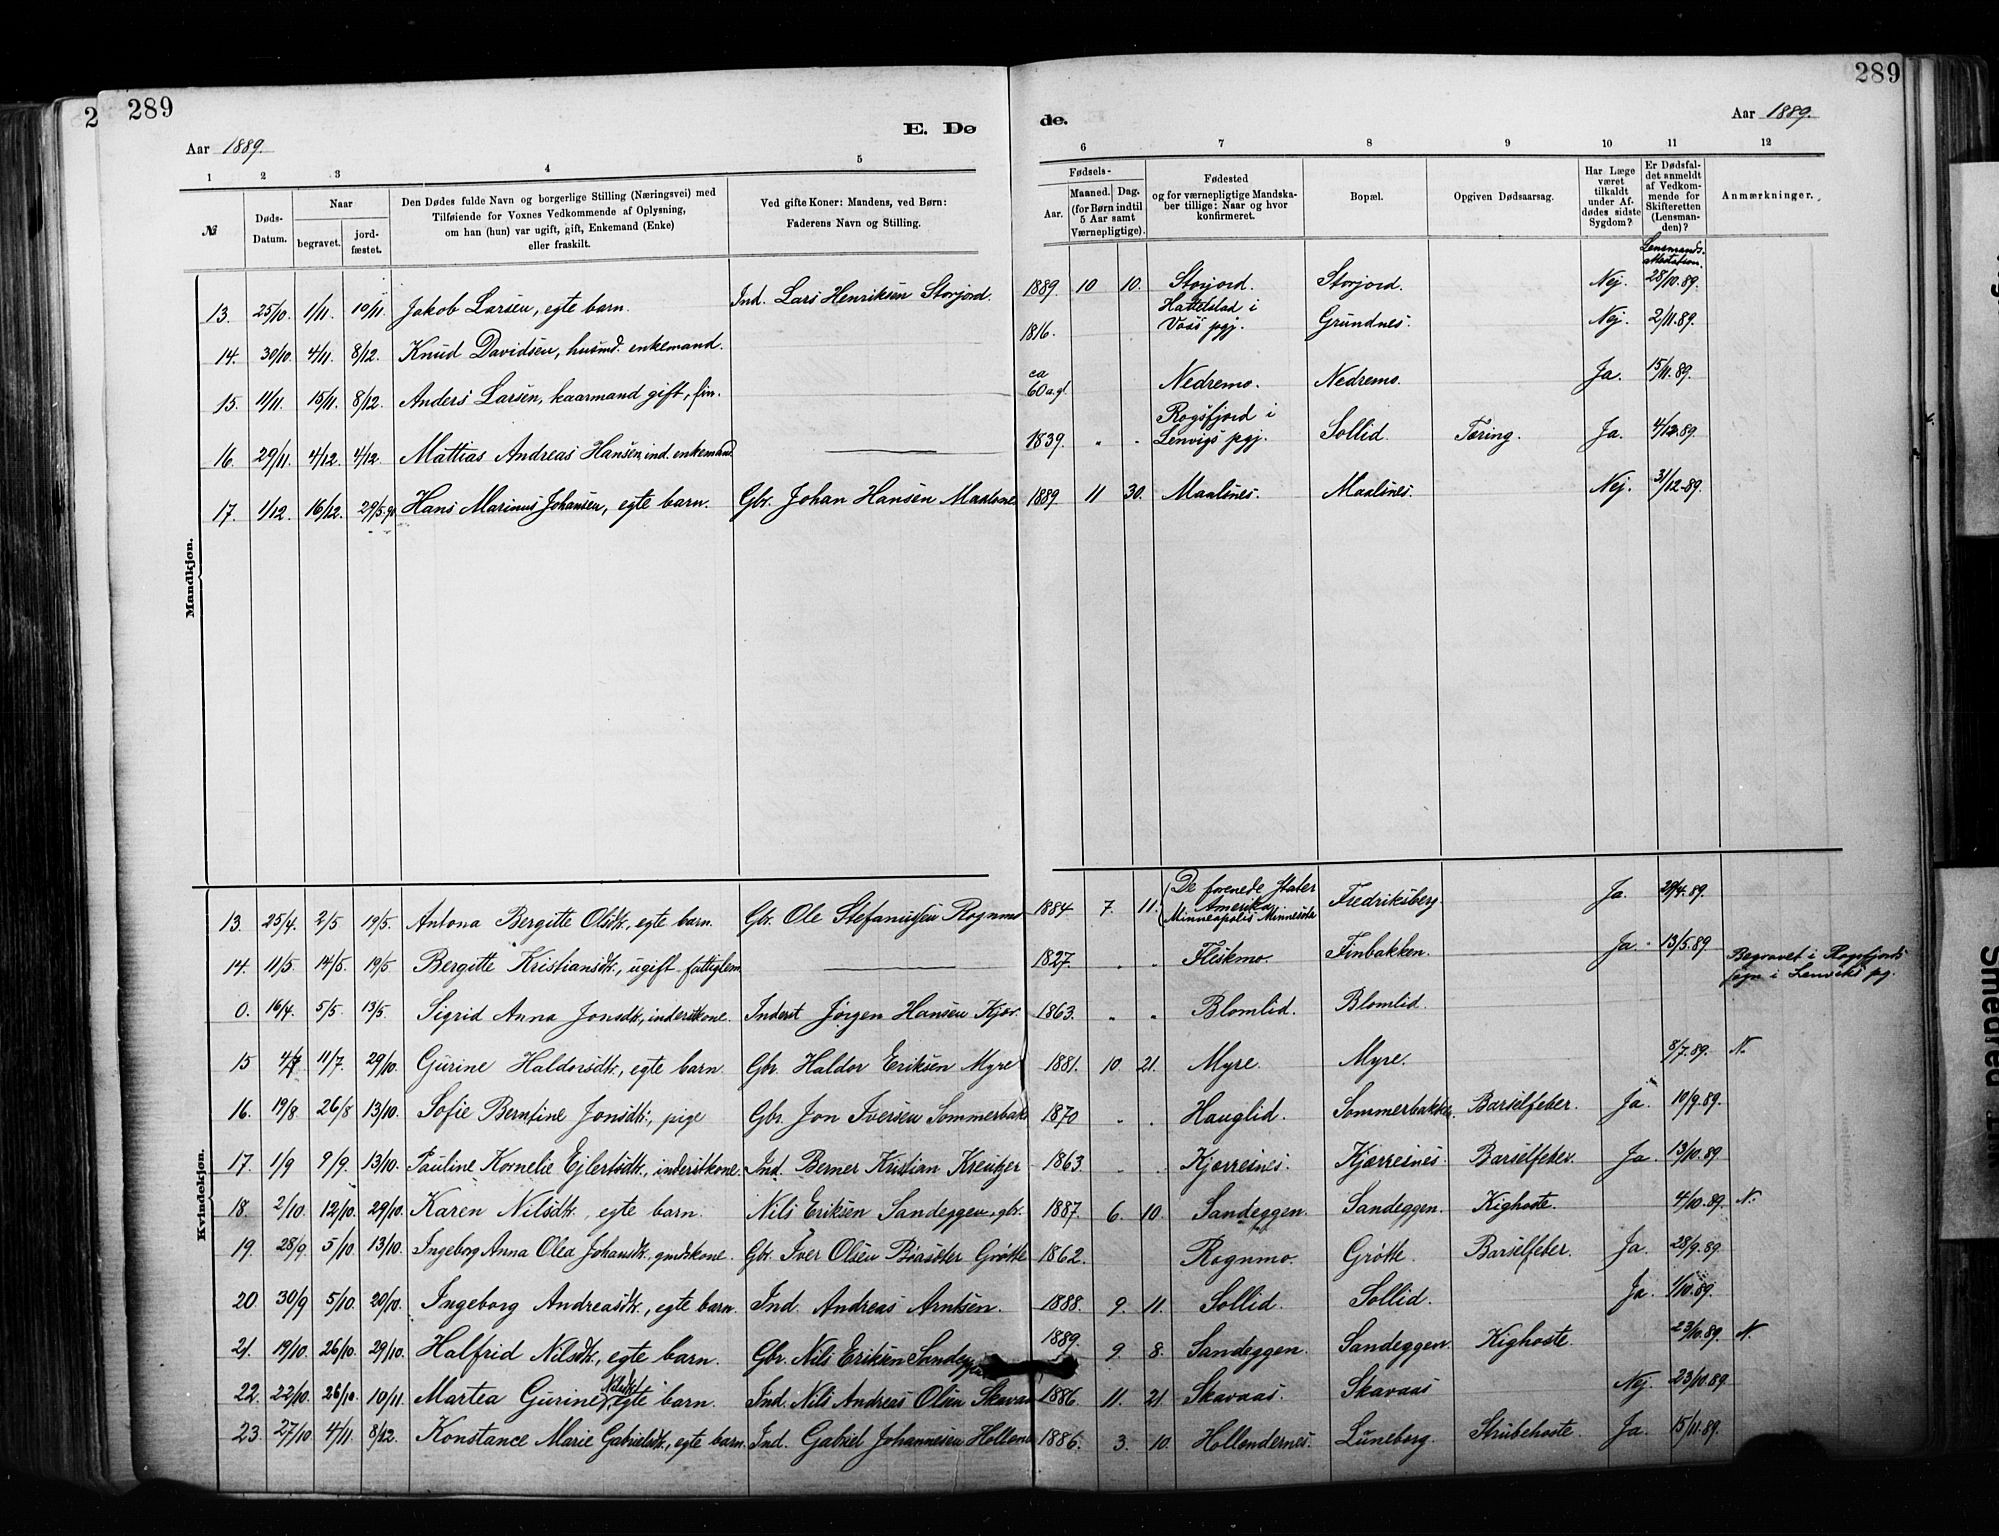 289
289
Aar 1889.
E. Dø
de.
Aar 1889.
1 2 3 4 5 6 7 8 9 10 11 12
№
Døds-
Datum.
Naar
begravet.
jord-
fæstet.
Den Dødes fulde Navn og borgerlige Stilling (Næringsvei) med
Tilføiende for Voxnes Vedkommende af Oplysning,
om han (hun) var ugift, gift, Enkemand (Enke)
eller fraskilt.
Ved gifte Koner: Mandens, ved Børn:
Faderens Navn og Stilling.
Fødsels-
Aar.
Maaned. Dag.
(for Børn indtil
5 Aar samt
Værnepligtige).
Fødested
og for værnepligtige Mandska-
ber tillige: Naar og hvor
konfirmeret.
Bopæl.
Opgiven Dødsaarsag.
Har Læge
været
tilkaldt
under Af-
dødes sidste
Sygdom?
Er Dødsfal-
det anmeldt
af Vedkom-
mende for
Skifteretten
(Lensman-
den)?
Anmærkninger.
Mandkjøn.
Lensmands-
13. 25/10. 1/11. 10/11. Jakob Larsen, egte barn. Ind. Lars Henriksen Storjord. 1889 10 10. Storjord. Storjord. Nej. 28/10.89.
14. 30/10. 4/11. 8/12. Knud Davidsen, husmd. enkemand. 1816. Hattelstad i Voss pgj. Grundnes. Nej. 2/11.89.
15. 11/11. 15/11. 8/12. Anders Larsen, kaarmand gift, fin. ca 60 a. gl. Nedremo. Nedremo. Ja. 15/11.89.
16. 29/11. 4/12. 4/12. Mattias Andreas Hansen, ind. enkemand 1839. " " Rogsfjord i Lenvigs pgj. Sollid. Tæring. Ja. 4/12.89.
17. 1/12. 16/12. 29/5.90 Hans Marinus Johansen, egte barn. Gbr. Johan Hansen Maalsnes 1889 11 30. Maalsnes. Maalsnes. Nej. 31/12.89.
Kvindekjøn.
13. 25/4. 2/5 19/5. Antona Bergitte Olsdtr., egte barn. Gbr. Ole Stefanussen Rognmo 1884 7. 11. De forenede Stater Amerika. Minneapolis Minnesota Fredriksberg Ja. 29/4.89.
14. 11/5. 14/5. 19/5 Bergitte Kristiansdtr., ugift fattiglem 1827. " " Fleskmo. Finbakken. Ja. 13/5.89.
0. 16/4. 5/5. 13/5. Sigrid Anna Jonsdtr., inderstkone. Inderst Jørgen Hansen Kjær. 1863. " " Blomlid. Blomlid. Begravet i Rogsfjords sogn i Lenviks pg.
15 4/7 11/7. 29/10. Gurine Haldorsdtr., egte barn. Gbr. Haldor Eriksen Myre 1881. 10. 21. Myre. Myre. 8/7.89. N.
16. 19/8. 26/8 13/10. Sofie Berntine Jonsdtr., pige Gbr. Jon Iversen Sommerbak 1870 " " Hauglid. Sommerbakken. Barselfeber. Ja. 10/9.89.
17. 1/9 9/9. 13/10. Pauline Kornelie Ejlertsdtr., inderstkone. Ind. Berner Kristian Kreutzer 1863. " " Kjærresnes. Kjærresnes. Barselfeber. Ja. 13/10.89.
18. 2/10. 12/10. 29/10. Karen Nilsdtr. egte barn. Nils Eriksen Sandeggen, gbr. 1887. 6. 10. Sandeggen. Sandeggen. Kighoste. 4/10.89. N.
19. 28/9. 5/10 13/10. Ingeborg Anna Olea Johansdtr. gmdskone. Gbr. Iver Olsen Brasæter Grøtte 1862. Rognmo. Grøtte. Barselfeber. Ja. 28/9.89.
20 30/9 5/10. 20/10. Ingeborg Andreasdtr., egte barn. Ind. Andreas Arntsen. 1888. 9. 11. Sollid. Sollid. Ja. 1/10.89.
21. 19/10. 26/10. 29/10. Halfrid Nilsdtr., egte barn. Gbr. Nils Eriksen Sandeggen 1889. 9. 8. Sandeggen. Sandeggen. Kighoste. 23/10.89. N.
22. 22/10. 26/10. 10/11. Martea Gurine Nilsdtr. egte barn. Ind. Nils Andreas Olsen Skavaas 1886. 11. 21. Skavaas. Skavaas Nej. 23/10.89
23. 27/10 4/11. 8/12. Konstance Marie Gabrielsdtr., egte barn. Ind. Gabriel Johannesen Hollend 1886. 3. 10. Hollendernes. Luneborg. Strubehoste. Ja. 15/11.89.